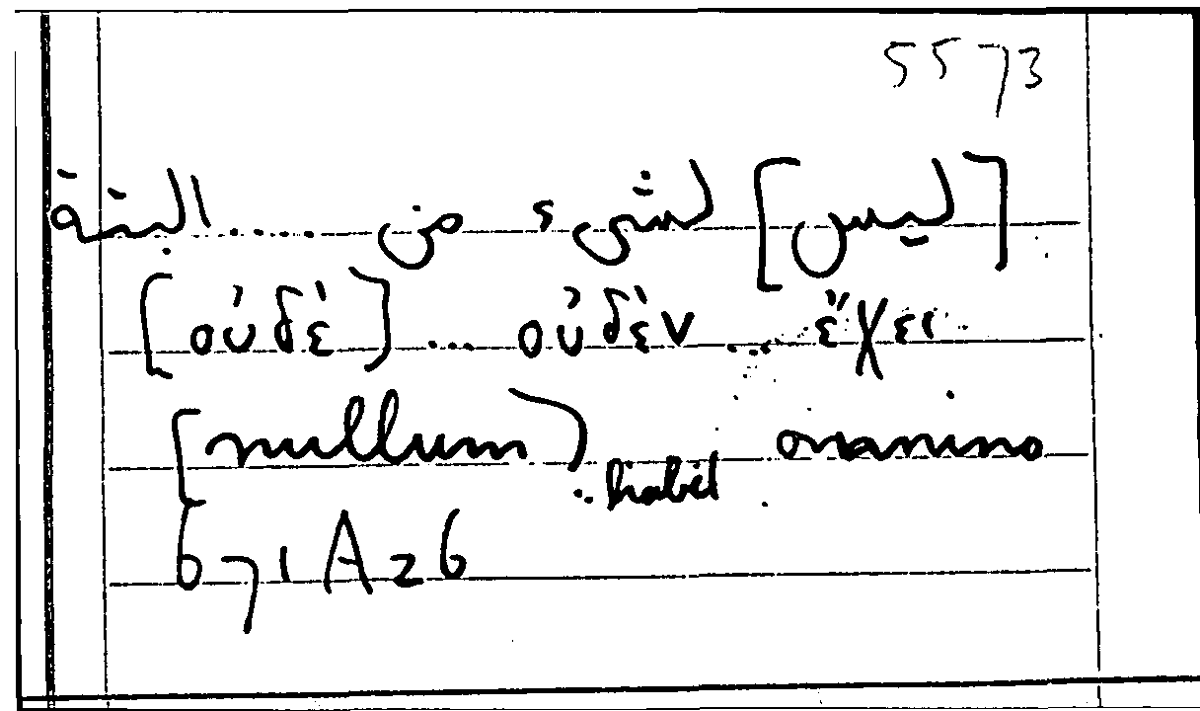 5573
[ليس] لشيء من ..... البتة
[οὐδὲ] ... οὐδὲν ... ἔχει
[nullum] .. habet omnino
671 A 26